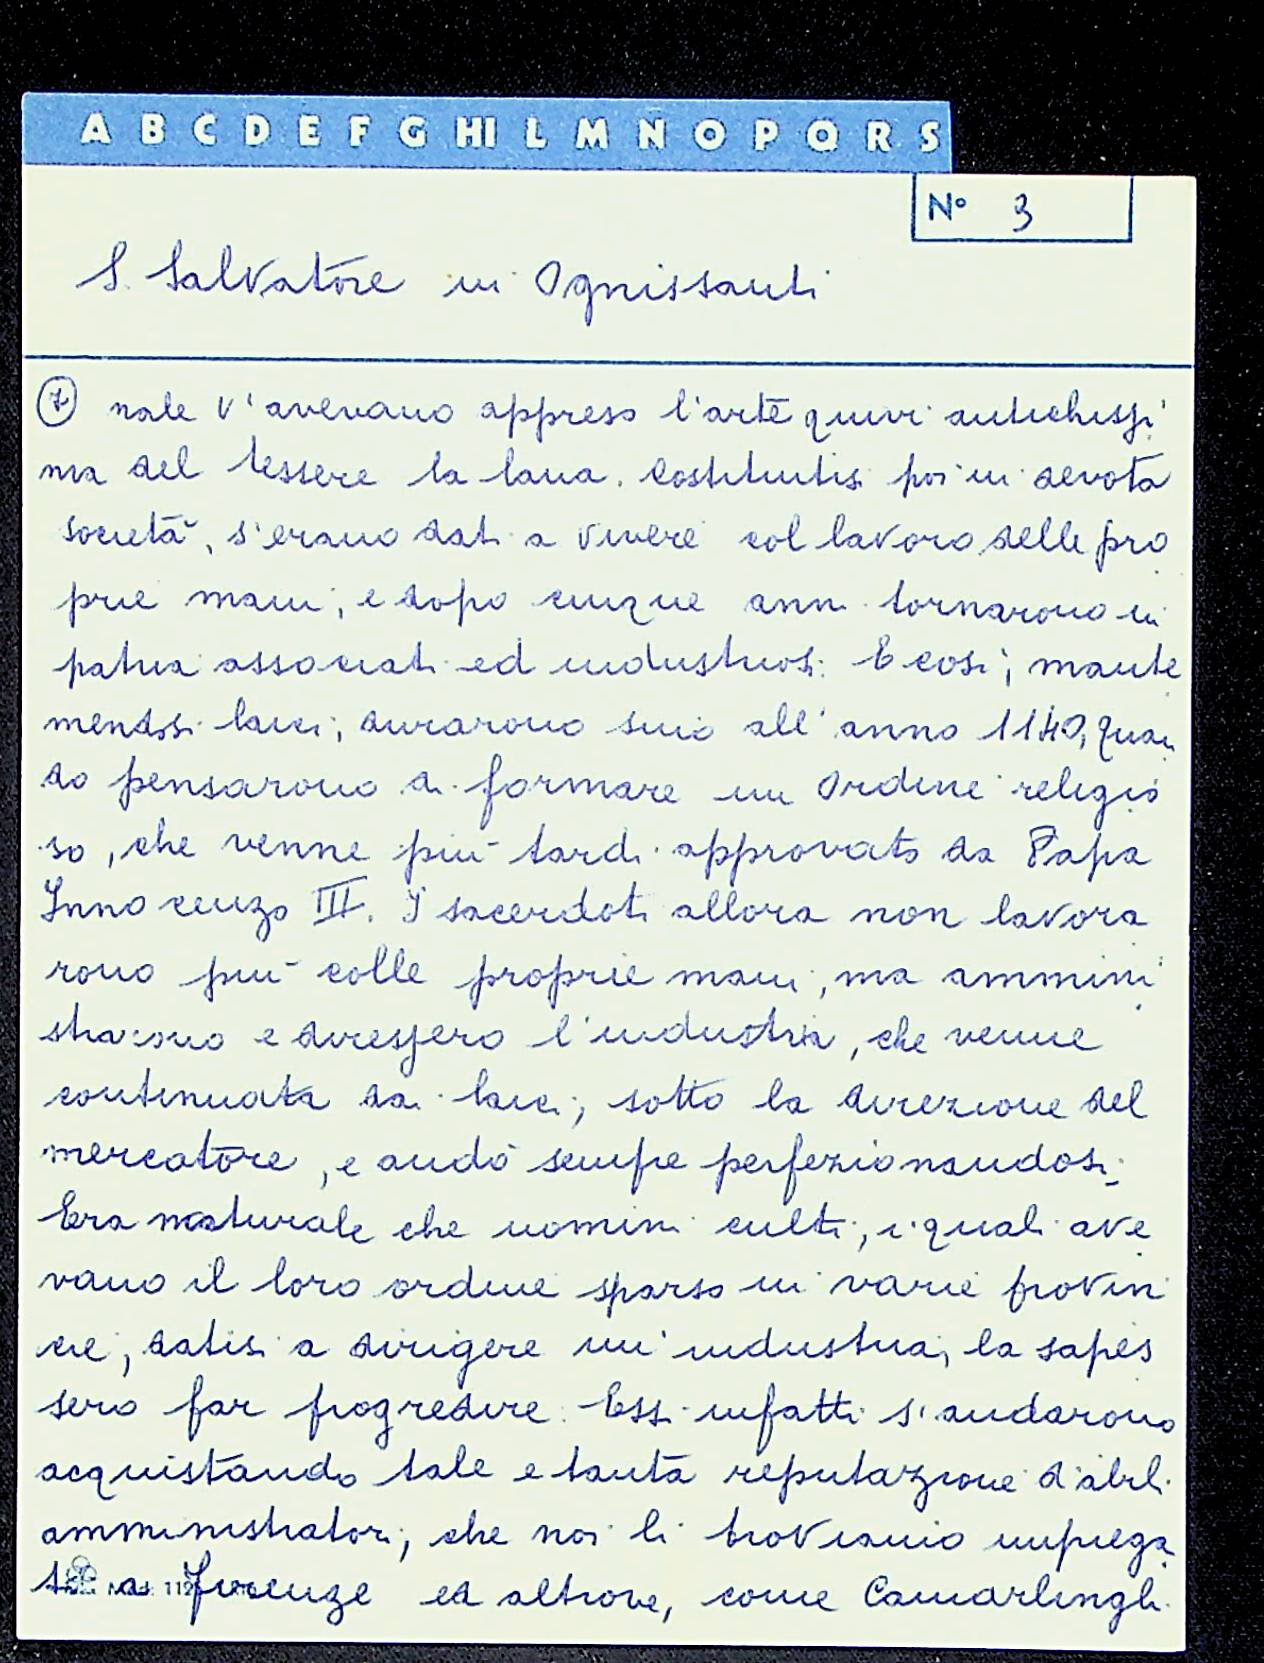 A B C D E F G HI L M N O P Q R S
N° 3
S. Salvatore in Ognissanti
7 nale v'avevano appreso l'arte quivi antichissi
ma del tessere la lana. Costituitisi poi in devota
società, s'erano dati a vivere col lavoro delle pro
prie mani, e dopo cinque anni tornarono in
patria associati ed industriosi. E così, mante
nendosi laici, durarono sino all'anno 1140, quan
do pensarono di formare un Ordine religio
so, che venne più tardi approvato da Papa
Innocenzo III. I sacerdoti allora non lavora
rono più colle proprie mani, ma ammini
strarono e diressero l'industria, che venne
continuata dai laici, sotto la direzione del
mercatore, e andò sempre perfezionandosi.
Era naturale che uomini culti, i quali ave
vano il loro ordine sparso in varie provin
cie, datisi a dirigere un'industria, la sapes
sero far progredire. Essi infatti s'andarono
acquistando tale e tanta reputazione d'abili
amministratori, che noi li troviamo impiega
ti a Firenze ed altrove, come Camarlinghi